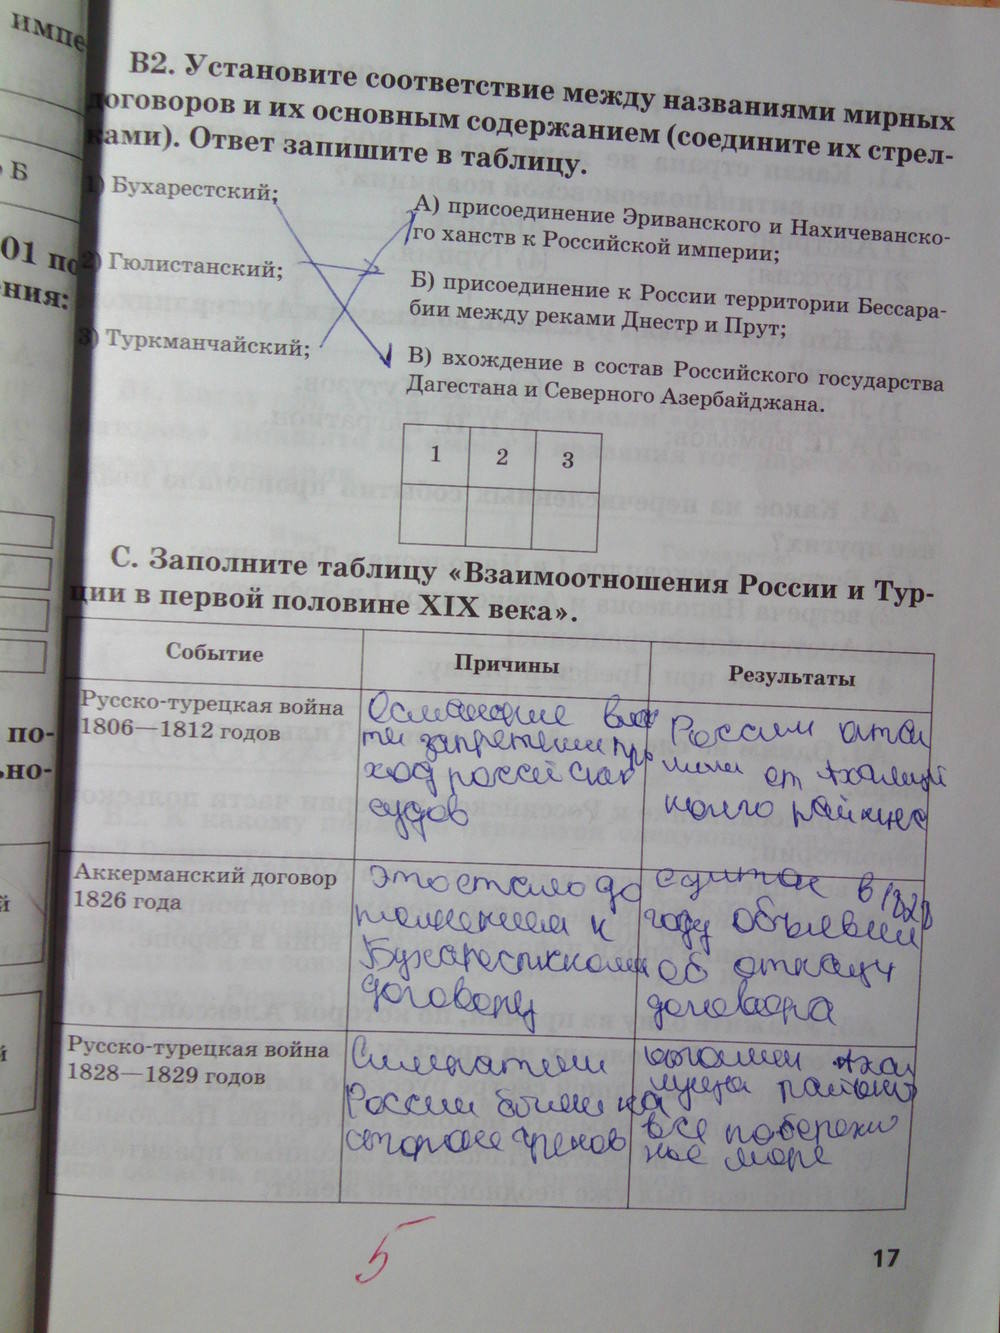 импе
Б
01 по
ния:
по-
ьно-
й
й
В2. Установите соответствие между названиями мирных
договоров и их основным содержанием (соедините их стрел-
ками). Ответ запишите в таблицу.
1) Бухарестский;
2) Гюлистанский;
3) Туркманчайский;
А) присоединение Эриванского и Нахичеванско-
го ханств к Российской империи;
Б) присоединение к России территории Бессара-
бии между реками Днестр и Прут;
В) вхождение в состав Российского государства
Дагестана и Северного Азербайджана.
1 2 3
С. Заполните таблицу «Взаимоотношения России и Тур-
ции в первой половине XIX века».
Событие Причины Результаты
Русско-турецкая война
1806—1812 годов
Османские влас
ти запретили про
ход российских
судов
России
от
кого района
Аккерманский договор
1826 года
Это стало до
полнением к
Бухарестскому
договору
султан в 1828
году объявил
об отказу
договора
Русско-турецкая война
1828—1829 годов
Симпатии
России были на
стороне греков
района
все побережи
ное море
5
17